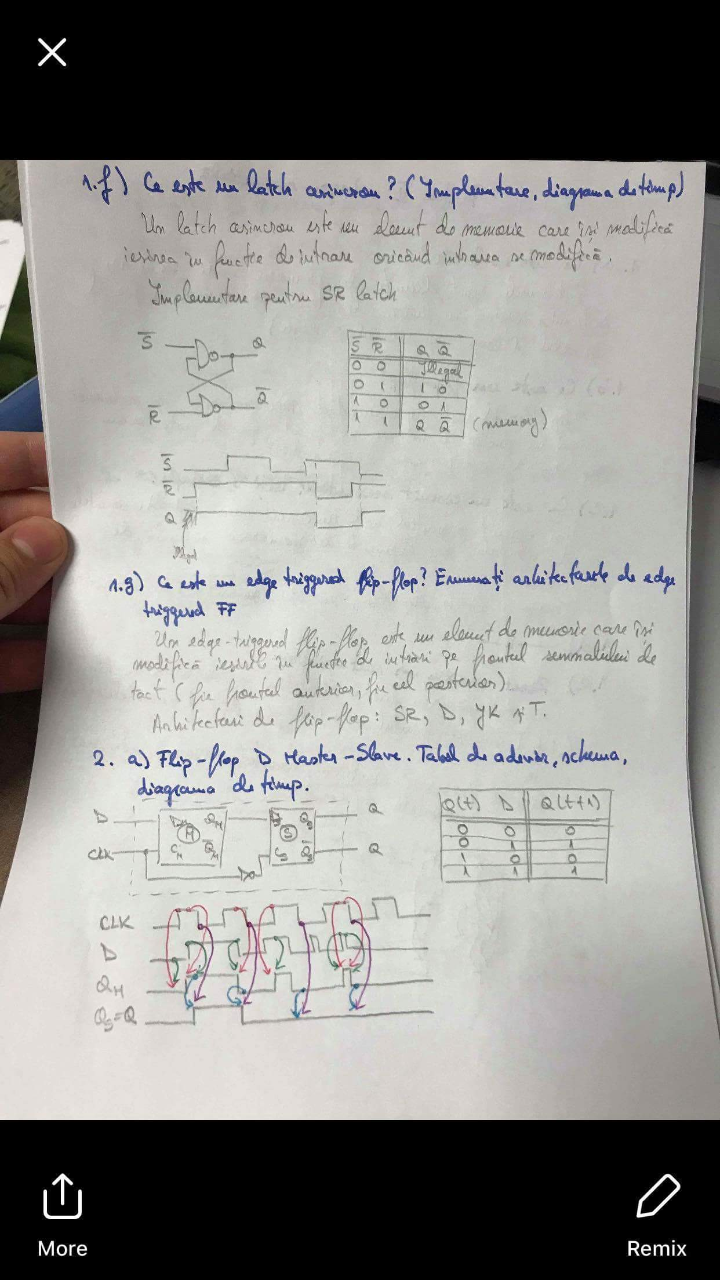 1.f) Ce este un latch asincron? (Implementare, diagrama de timp)
Un latch asincron este un element de memorie care își modifică
ieșirea în funcție de intrare oricând intrarea se modifică.
Implementare pentru SR latch
S̅ Q
R̅ Q̅
S̅ R̅ Q Q̅
0 0 Illegal
0 1 1 0
1 0 0 1
1 1 Q Q̅ (memory)
S̅
R̅
Q
1.g) Ce este un edge triggered flip-flop? Enumerați arhitecturile de edge
triggered FF
Un edge-triggered flip-flop este un element de memorie care își
modifică ieșirile în funcție de intrări pe frontul semnalului de
tact (fie frontul anterior, fie cel posterior)
Arhitecturi de flip-flop: SR, D, JK și T.
2. a) Flip-flop D Master-Slave. Tabel de adevăr, schema,
diagrama de timp.
D Q_M Q
CLK C_M Q̅_M Q
M S
Q(t) D Q(t+1)
0 0 0
0 1 1
1 0 0
1 1 1
CLK
D
Q_M
Q_S=Q
More Remix